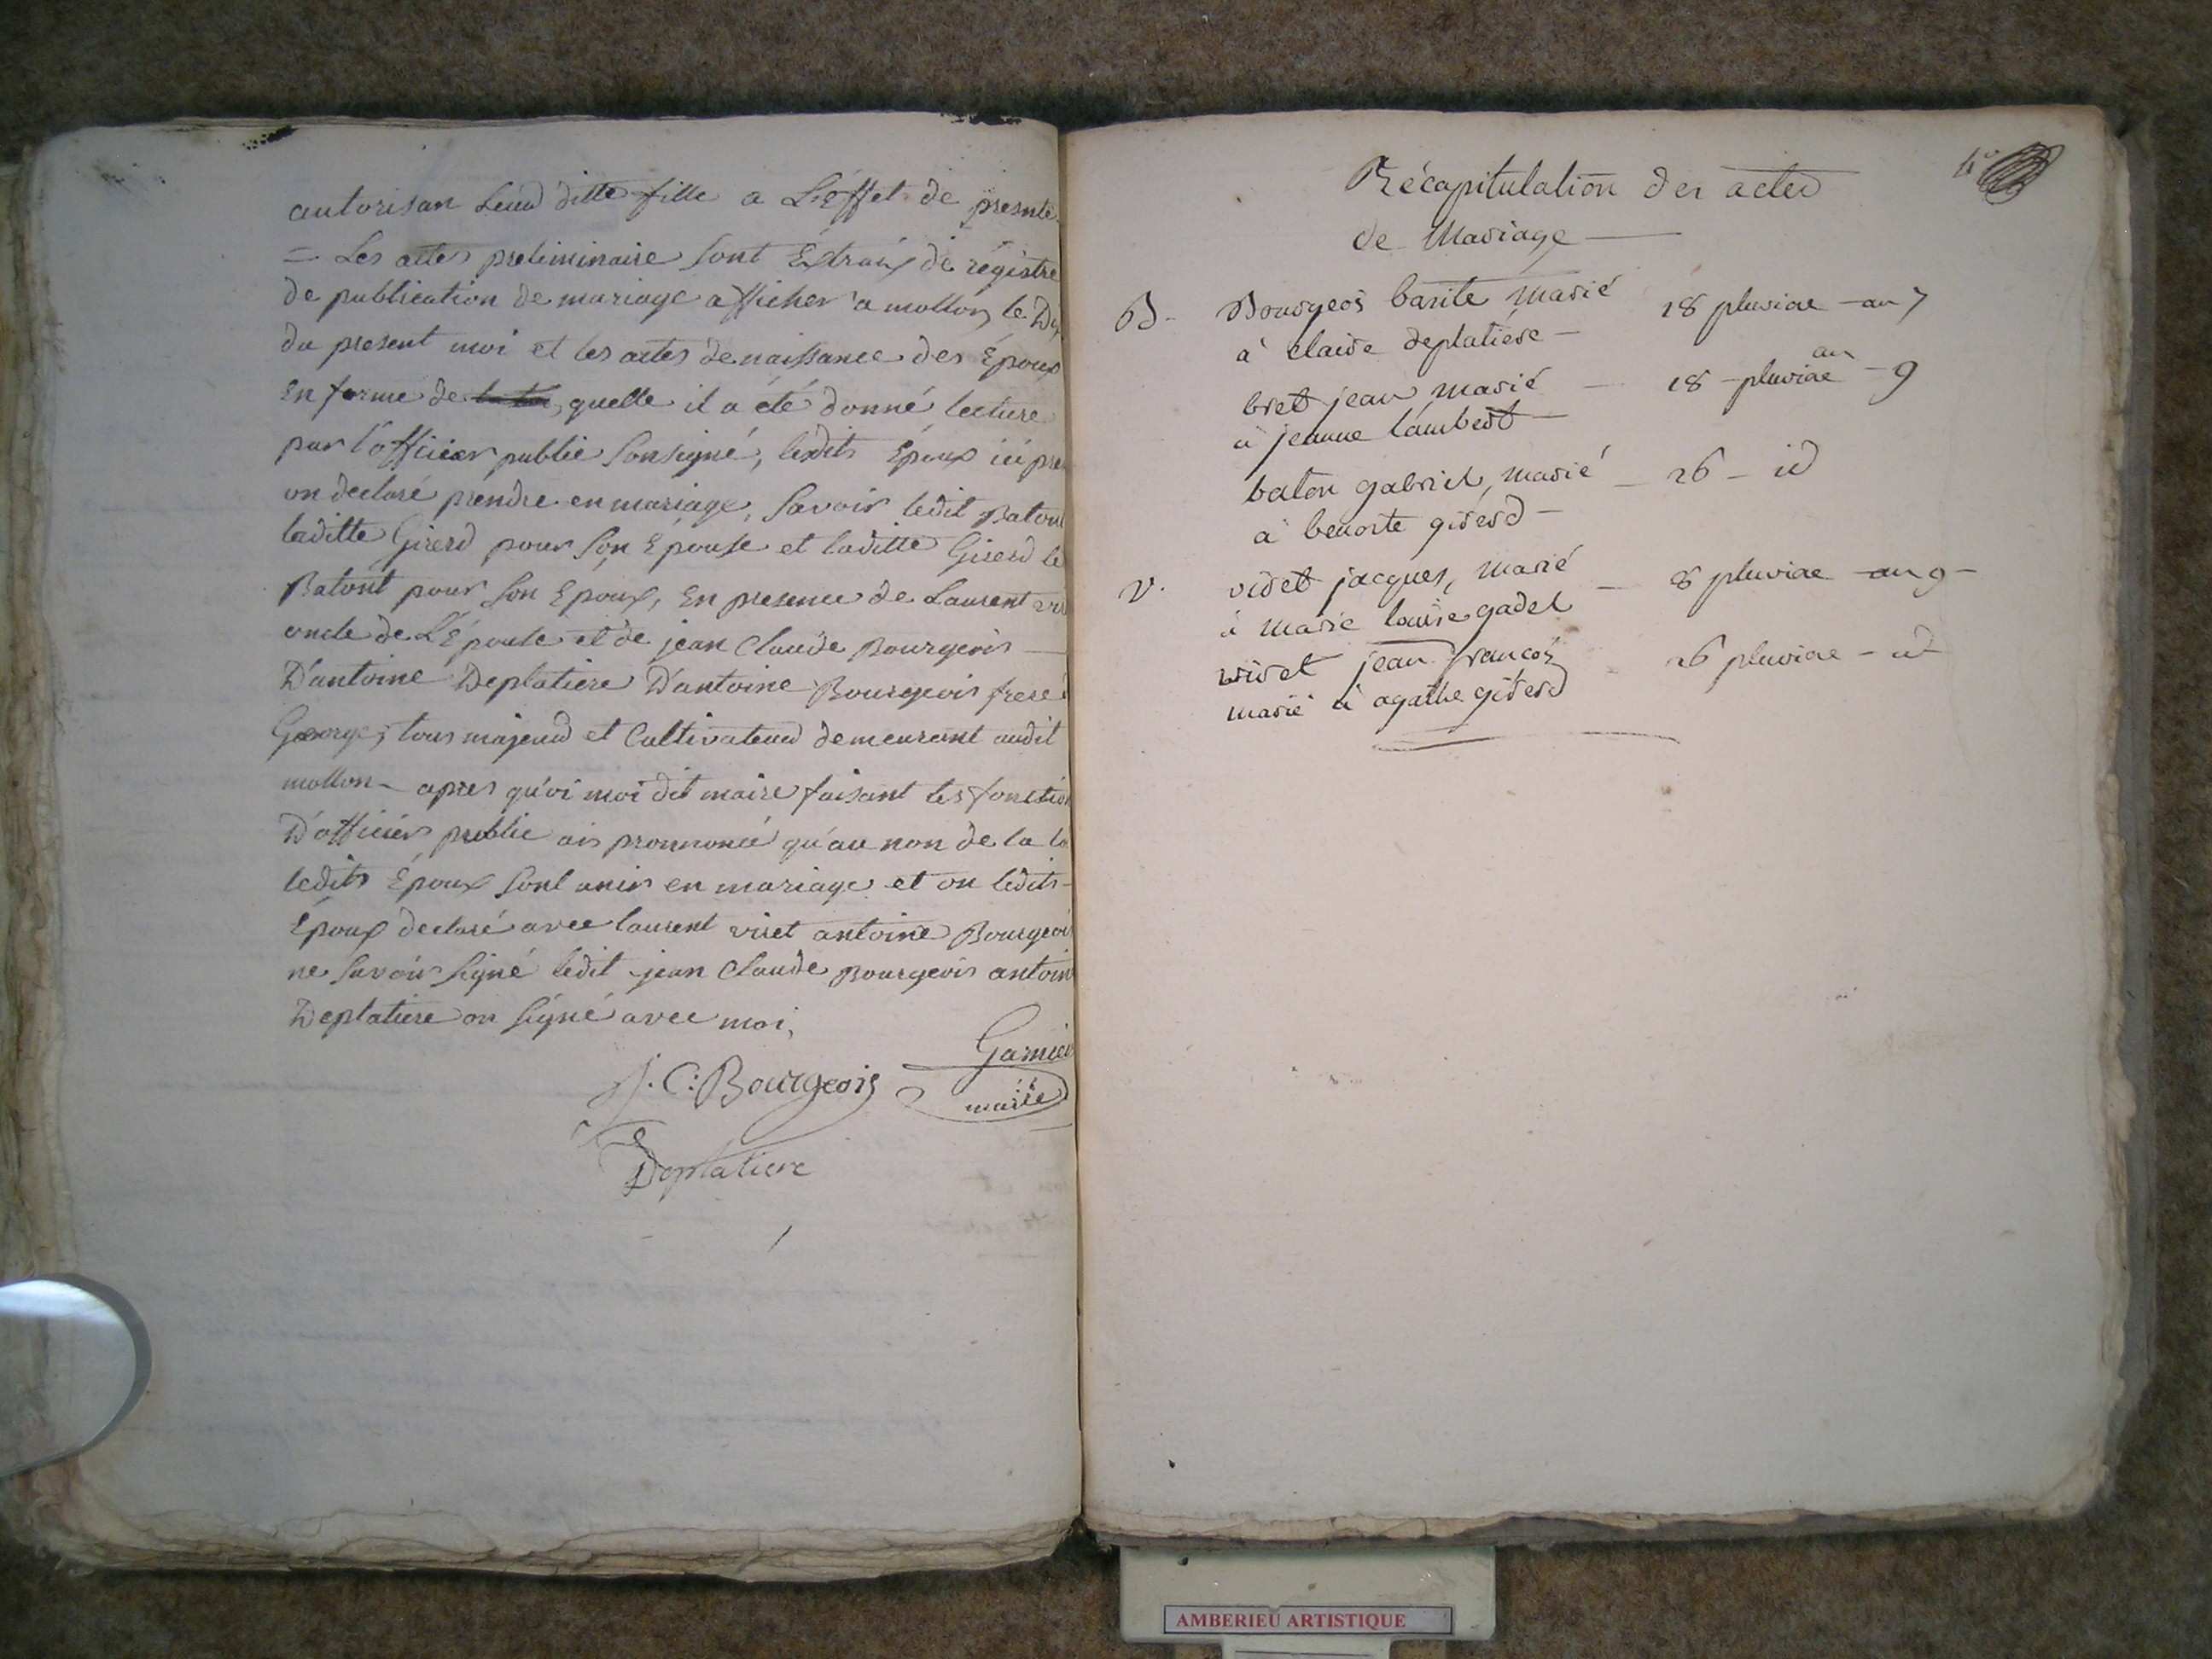 autorisan leurd ditte fille a L'éffet de presnte
= Les actes preliminaire sont Éxtraix de régistre
de publication de mariage afficher a mollon le Dix
du present moi et les actes de naissance des Époux
En forme de quelle il a été donné lecture
par l'officier public sousigné, lesdits Époux ici pre
on declaré prendre en mariage, savoir ledit Batont
laditte Girerd pour son Epouse et laditte Girerd le
Batont pour son Epoux, En presence de Laurent vir
oncle de L'Épouse et de jean Claude Bourgeois —
D'antoine Deplatiere D'antoine Bourgeois frere d
George, tous majeurd et Cultivateurd demeurant audit
mollon – apres qu'oi moi dit maire faisant les fonction
D'officier public ais prononcé qu'au non de la lo
ledits Époux sont unis en mariage et on ledits –
Epoux declaré avec laurent viret antoine Bourgeoi
ne savoir signé ledit jean Claude Bourgeois antoin
Deplatiere on signé avec moi,
J. C: Bourgeois Garnier
maire
Deplatiere
Récapitulation des actes
de Mariage —
B - Bourgeois batite marié 18 pluviae – an 7
à claire deplatiere –
bret jean marié — 18 – pluviae an – 9
à jeanne lambert –
baton gabriel, marié – 26 – id
à benoite girerd –
V. viret jacques, marié – 8 pluviae – an 9 –
à marie louise gadel
viret jean françois 26 pluviae – id
marié à agathe girerd
AMBERIEU ARTISTIQUE